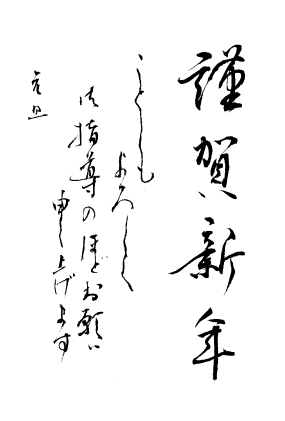 謹賀新年
ことしも
よろしく
御指導のほどお願い
申し上げます
元旦